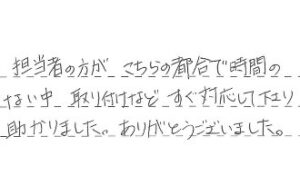 担当者の方が こちらの都合で時間の
ない中 取り付けなど すぐ対応して下さり
助かりました。ありがとうございました。